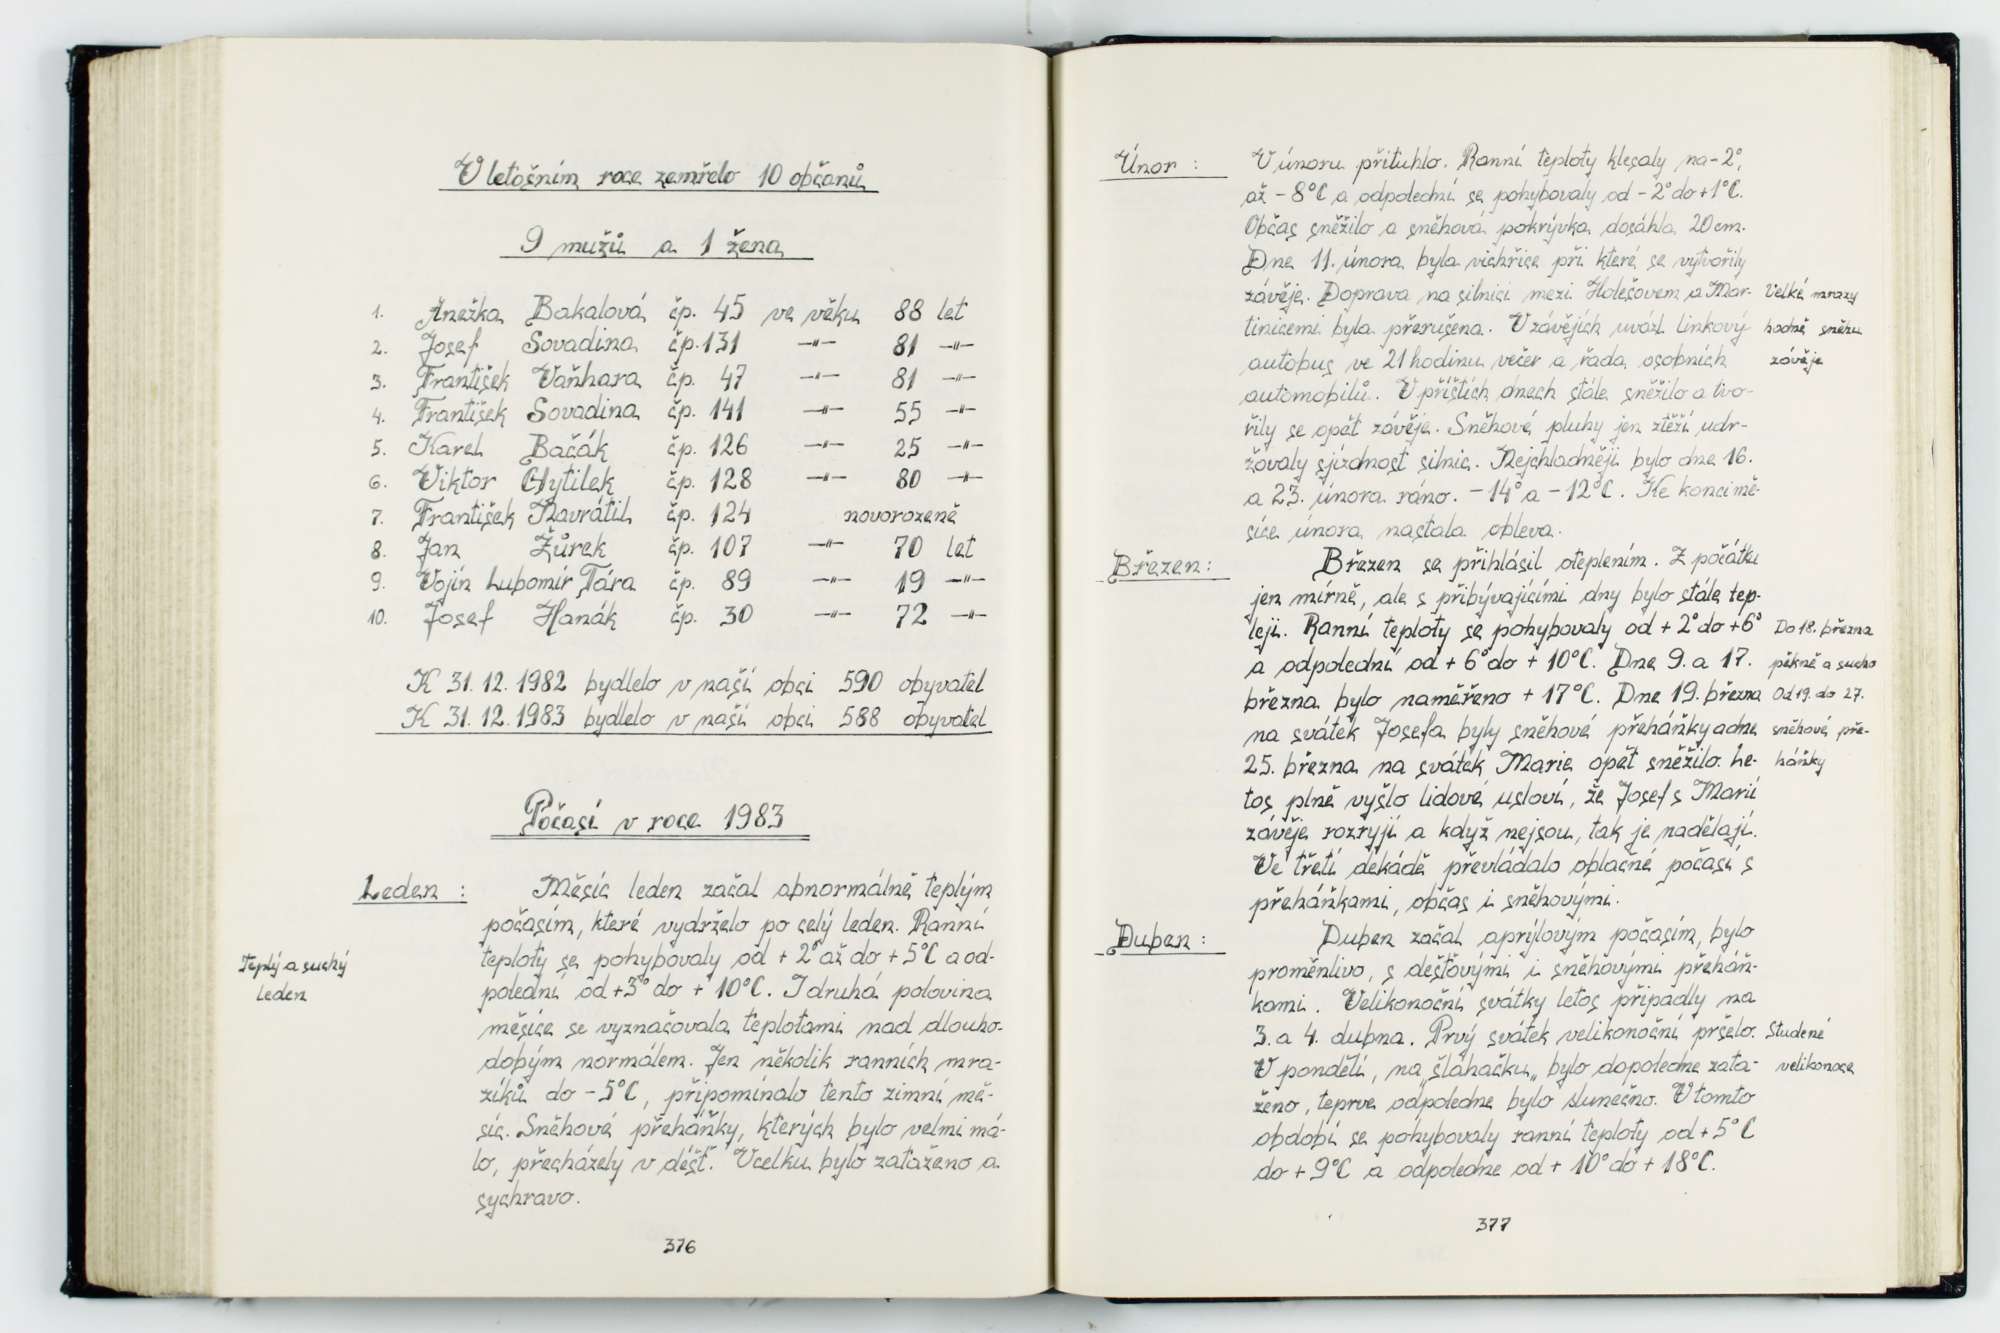 V letošním roce zemřelo 10 občanů
9 mužů a 1 žena
1. Anežka Bakalová čp. 45 ve věku 88 let
2. Josef Sovadina čp. 131 —"— 81 —"—
3. František Vaňhara čp. 47 —"— 81 —"—
4. František Sovadina čp. 141 —"— 55 —"—
5. Karel Bačák čp. 126 —"— 25 —"—
6. Viktor Chytilek čp. 128 —"— 80 —"—
7. František Navrátil čp. 124 novorozeně
8. Jan Žůrek čp. 107 —"— 70 let
9. Vojín Lubomír Tára čp. 89 —"— 19 —"—
10. Josef Hanák čp. 30 —"— 72 —"—
K 31. 12. 1982 bydlelo v naší obci 590 obyvatel
K 31. 12. 1983 bydlelo v naší obci 588 obyvatel
Počasí v roce 1983
Leden :
Měsíc leden začal abnormálně teplým
počasím, které vydrželo po celý leden. Ranní
teploty se pohybovaly od + 2° až do + 5°C a od-
polední od +3° do + 10°C. I druhá polovina
měsíce se vyznačovala teplotami nad dlouho-
dobým normálem. Jen několik ranních mra-
zíků do – 5°C, připomínalo tento zimní mě-
síc. Sněhové přeháňky, kterých bylo velmi má-
lo, přecházely v déšť. Vcelku bylo zataženo a
sychravo.
Teplý a suchý
leden
376
Únor :
V únoru přituhlo. Ranní teploty klesaly na – 2°,
až – 8°C a odpolední se pohybovaly od – 2° do +1°C.
Občas sněžilo a sněhová pokrývka dosáhla 20 cm.
Dne 11. února byla vichřice při které se vytvořily
závěje. Doprava na silnici mezi Holešovem a Mar-
tinicemi byla přerušena. V závějích uvázl linkový
autobus ve 21 hodinu večer a řada osobních
automobilů. V příštích dnech stále sněžilo a tvo-
řily se opět závěje. Sněhové pluhy jen ztěží udr-
žovaly sjízdnost silnic. Nejchladněji bylo dne 16.
a 23. února ráno. – 14° a – 12°C. Ke konci mě-
síce února nastala obleva.
Velké mrazy
hodně sněhu
závěje
Březen :
Březen se přihlásil oteplením. Z počátku
jen mírně, ale s přibývajícími dny bylo stále tep-
leji. Ranní teploty se pohybovaly od + 2° do +6°
a odpolední od + 6° do + 10°C. Dne 9. a 17.
března bylo naměřeno + 17°C. Dne 19. března
na svátek Josefa byly sněhové přeháňky a dne
25. března na svátek Marie opět sněžilo. Le-
tos plně vyšlo lidové usloví, že Josef s Marií
závěje rozryjí a když nejsou, tak je nadělají.
Ve třetí dekádě převládalo oblačné počasí s
přeháňkami, občas i sněhovými.
Do 18. března
pěkně a sucho
Od 19. do 27.
sněhové pře-
háňky
Duben :
Duben začal aprílovým počasím, bylo
proměnlivo, s dešťovými i sněhovými přeháň-
kami. Velikonoční svátky letos připadly na
3. a 4. dubna. Prvý svátek velikonoční pršelo.
V pondělí, na „šlahačku„ bylo dopoledne zata-
ženo, teprve odpoledne bylo slunečno. V tomto
období se pohybovaly ranní teploty od + 5°C
do + 9°C a odpoledne od + 10° do + 18°C.
Studené
velikonoce
377